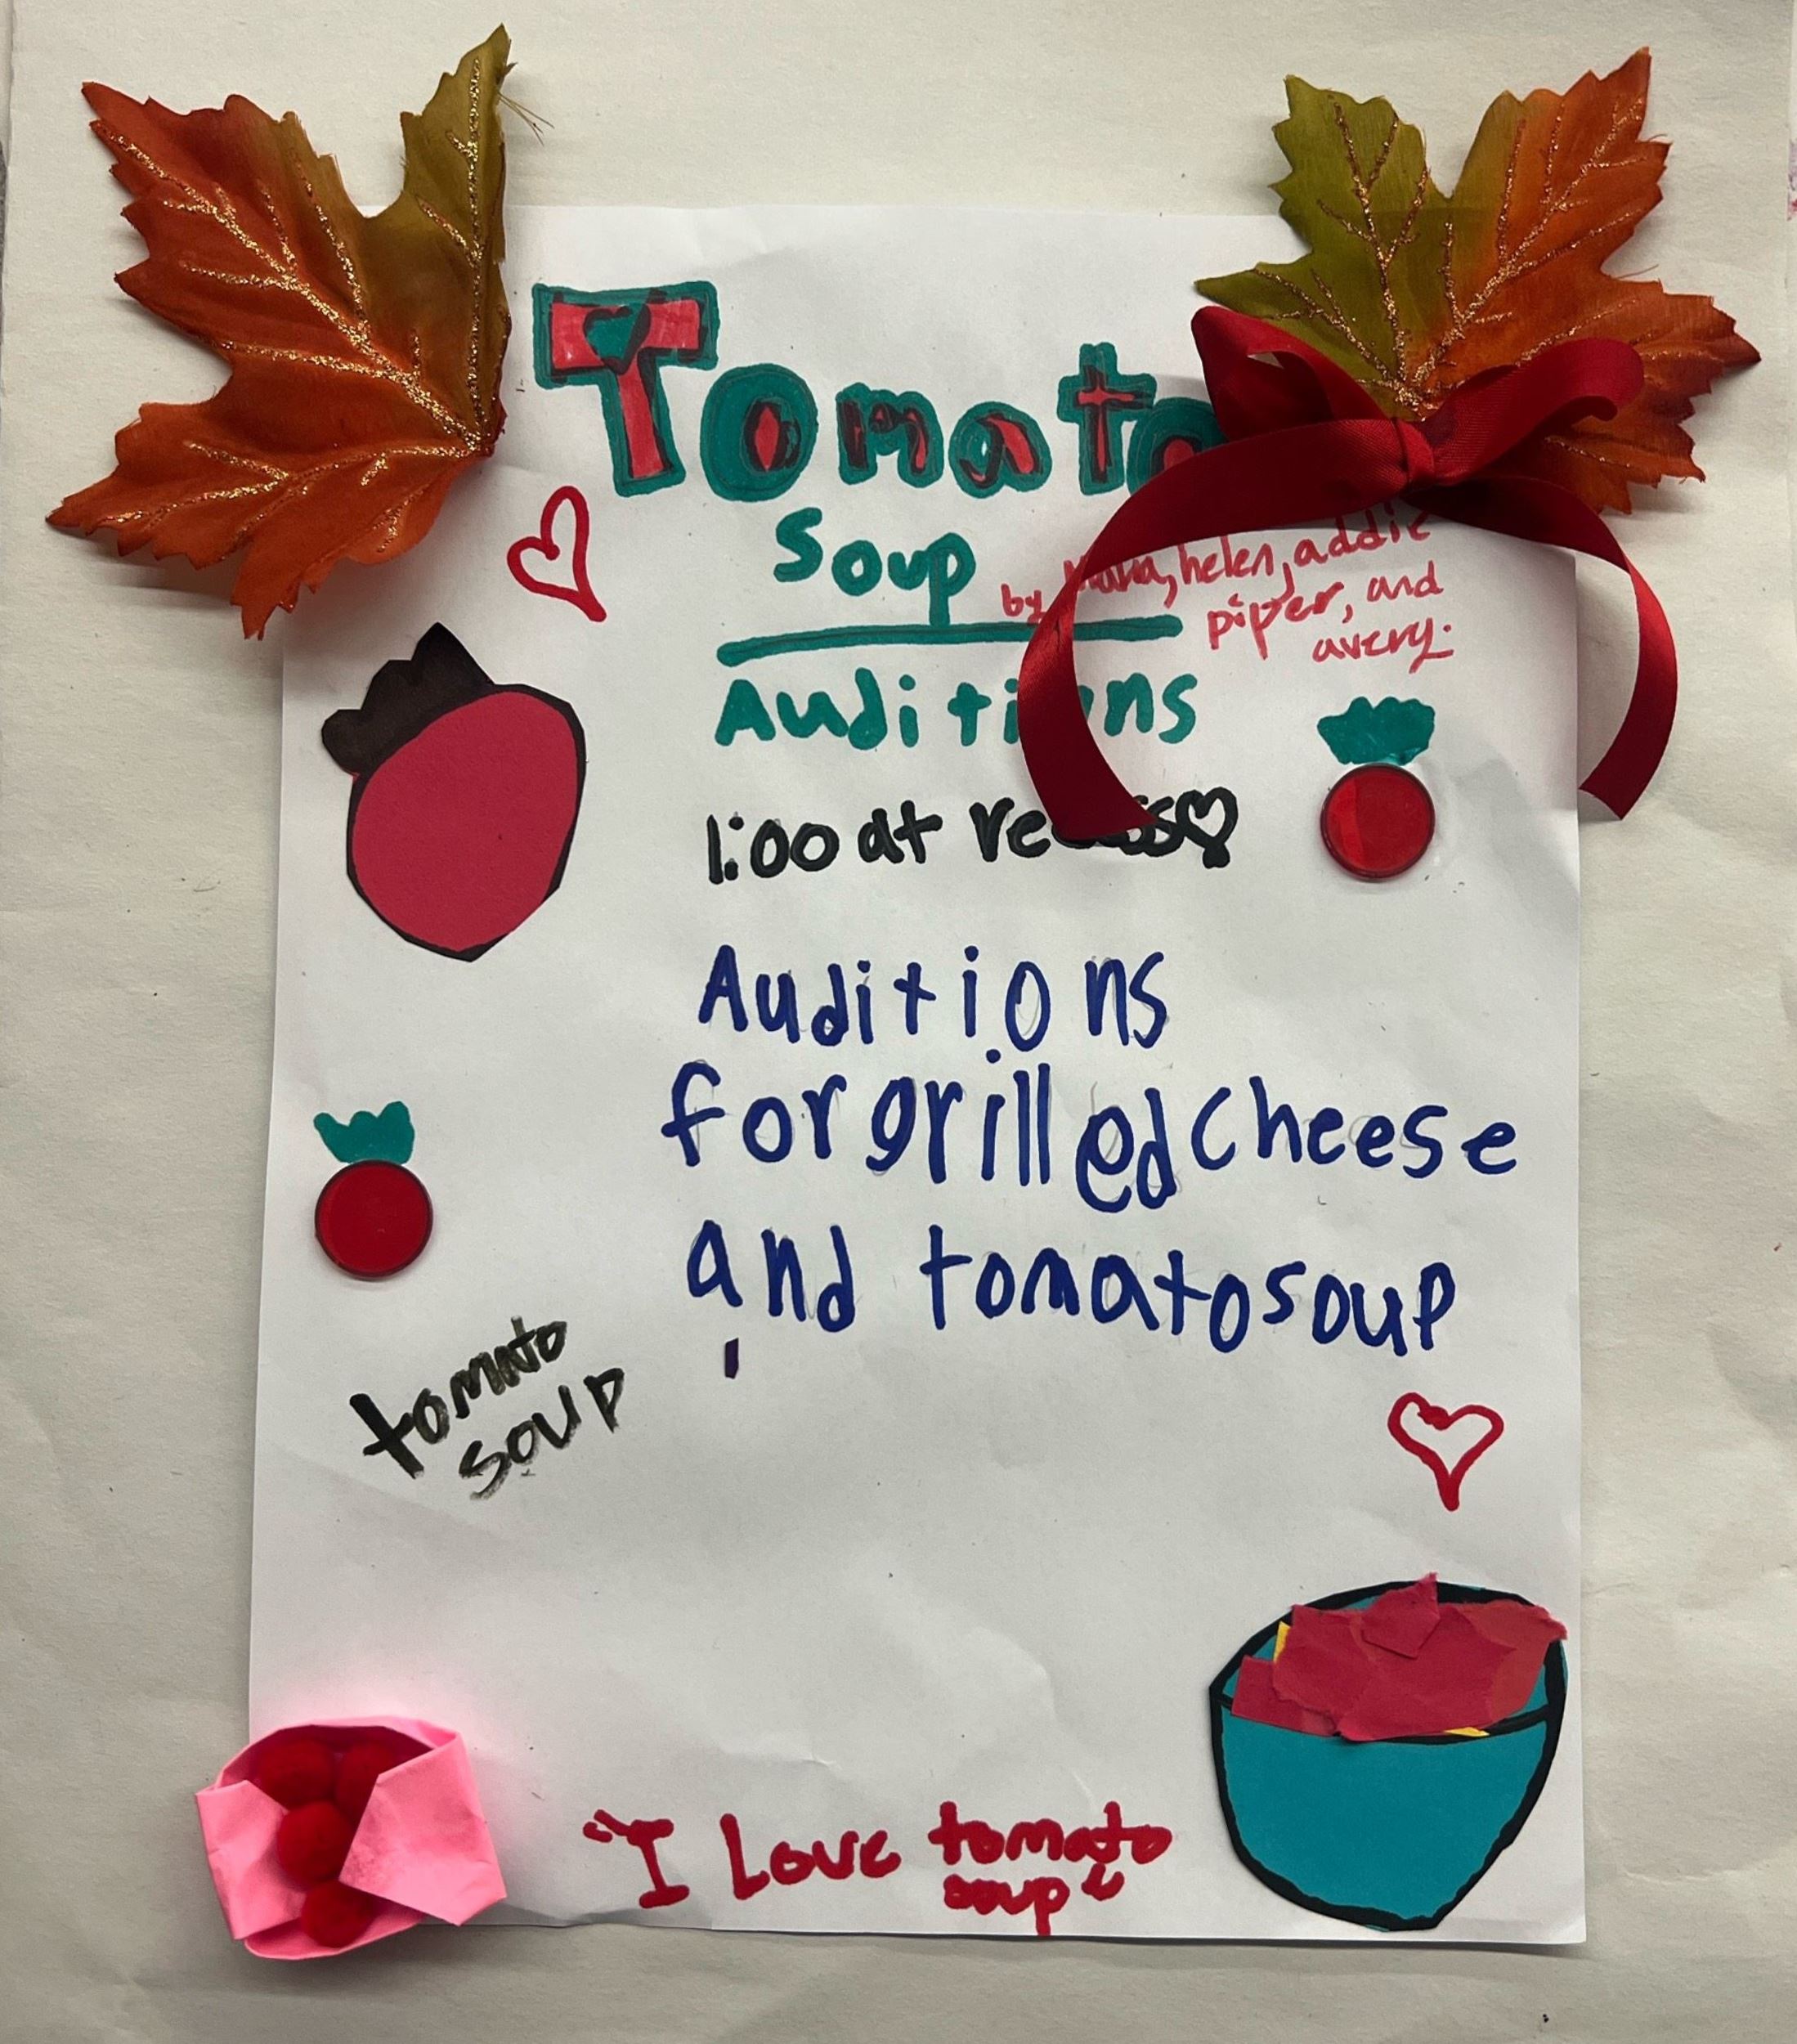 Tomato
Soup
by helen, addie
piper, and
avery.
Auditions
1:00 at recess
Auditions
for grilled cheese
and tomato soup
tomato
soup
"I Love tomato
soup"